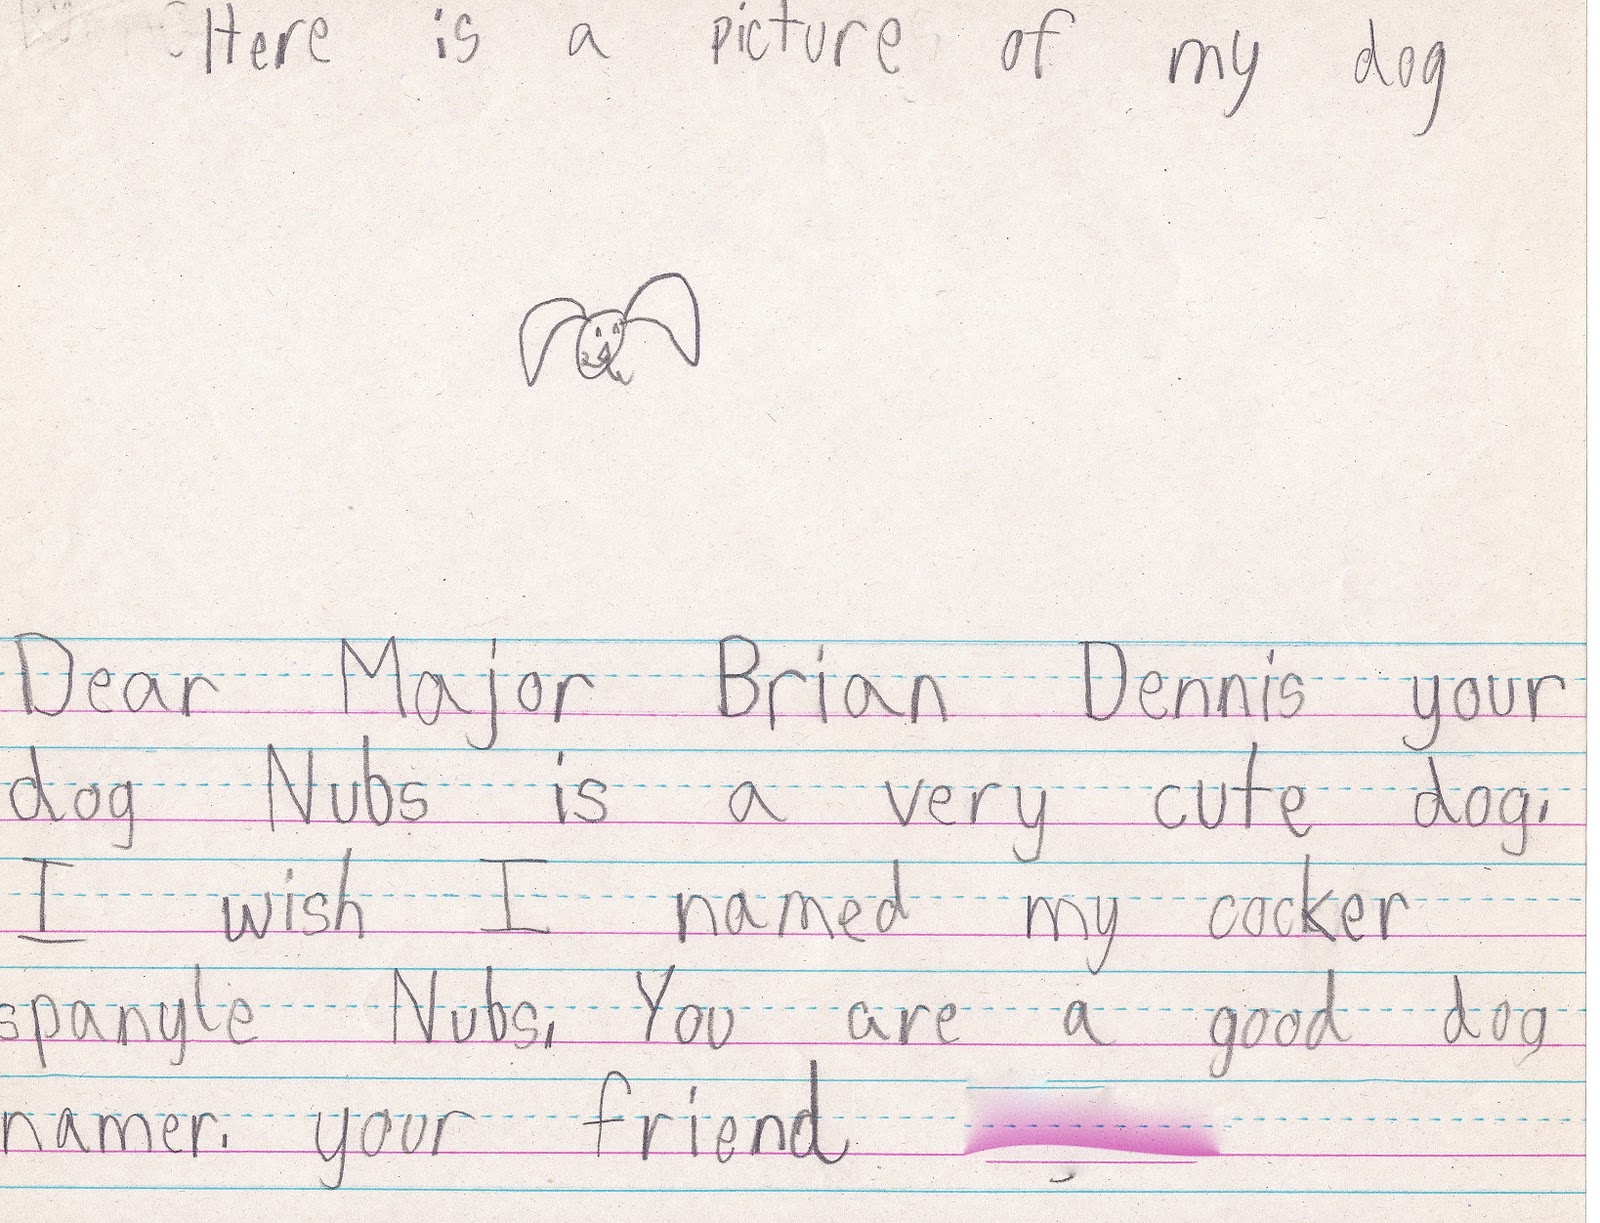 Here is a picture of my dog
Dear Major Brian Dennis your
dog Nubs is a very cute dog.
I wish I named my cocker
spanyle Nubs. You are a good dog
namer. your friend